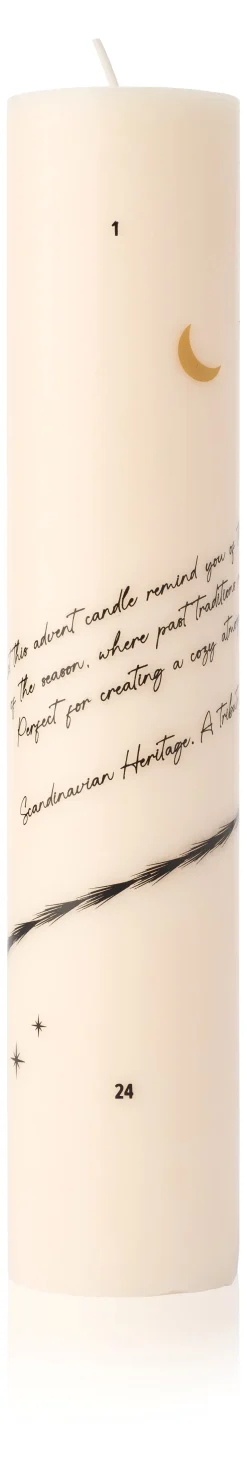 1
this advent candle remind you of
of the season, where past traditions
Perfect for creating a cozy
Scandinavian Heritage. A
24